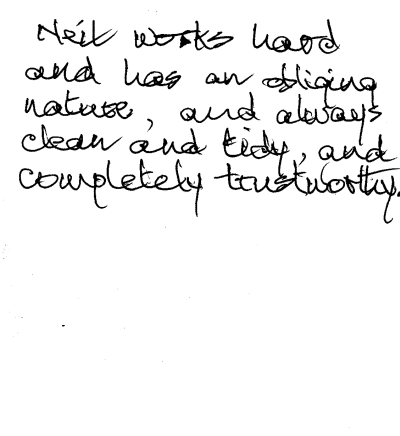 Neil works hard
and has an obliging
nature, and always
clean and tidy, and
completely trustworthy.